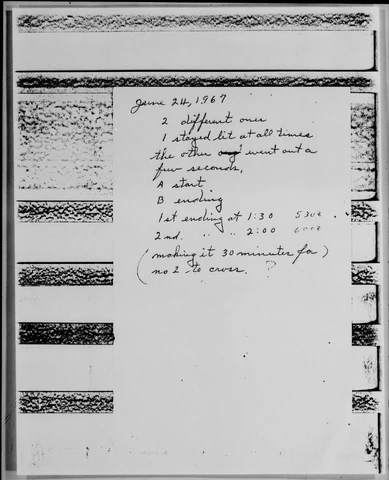 June 24, 1967
2 different ones
1 stayed lit at all times
the other went out a
few seconds.
A start
B ending
1st ending at 1:30
2nd. " " 2:00
(making it 30 minutes for)
no 2 to cross. ?